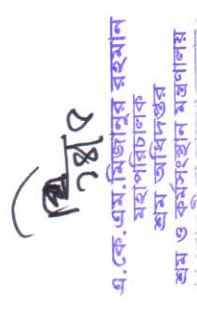 এ.কে.এম.মিজানুর রহমান
মহাপরিচালক
শ্রম অধিদপ্তর
শ্রম ও কর্মসংস্থান মন্ত্রণালয়